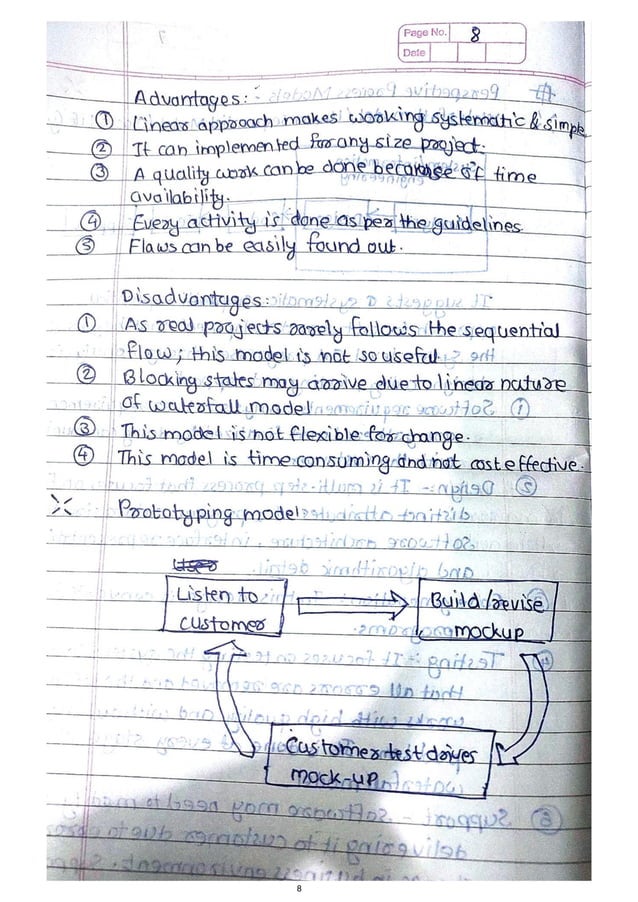 Page No. 8
Date
Advantages:-
① Linear approach makes working systematic & simple
② It can implemented for any size project.
③ A quality work can be done because of time
availability.
④ Every activity is done as per the guidelines
⑤ Flaws can be easily found out.
Disadvantages:
① As real projects rarely follows the sequential
flow; this model is not so useful.
② Blocking states may arrive due to linear nature
of waterfall model
③ This model is not flexible for change.
④ This model is time consuming and not cost effective.
Prototyping model
User
Listen to
customer
Build/revise
mockup
Customer test drives
mock-up
8